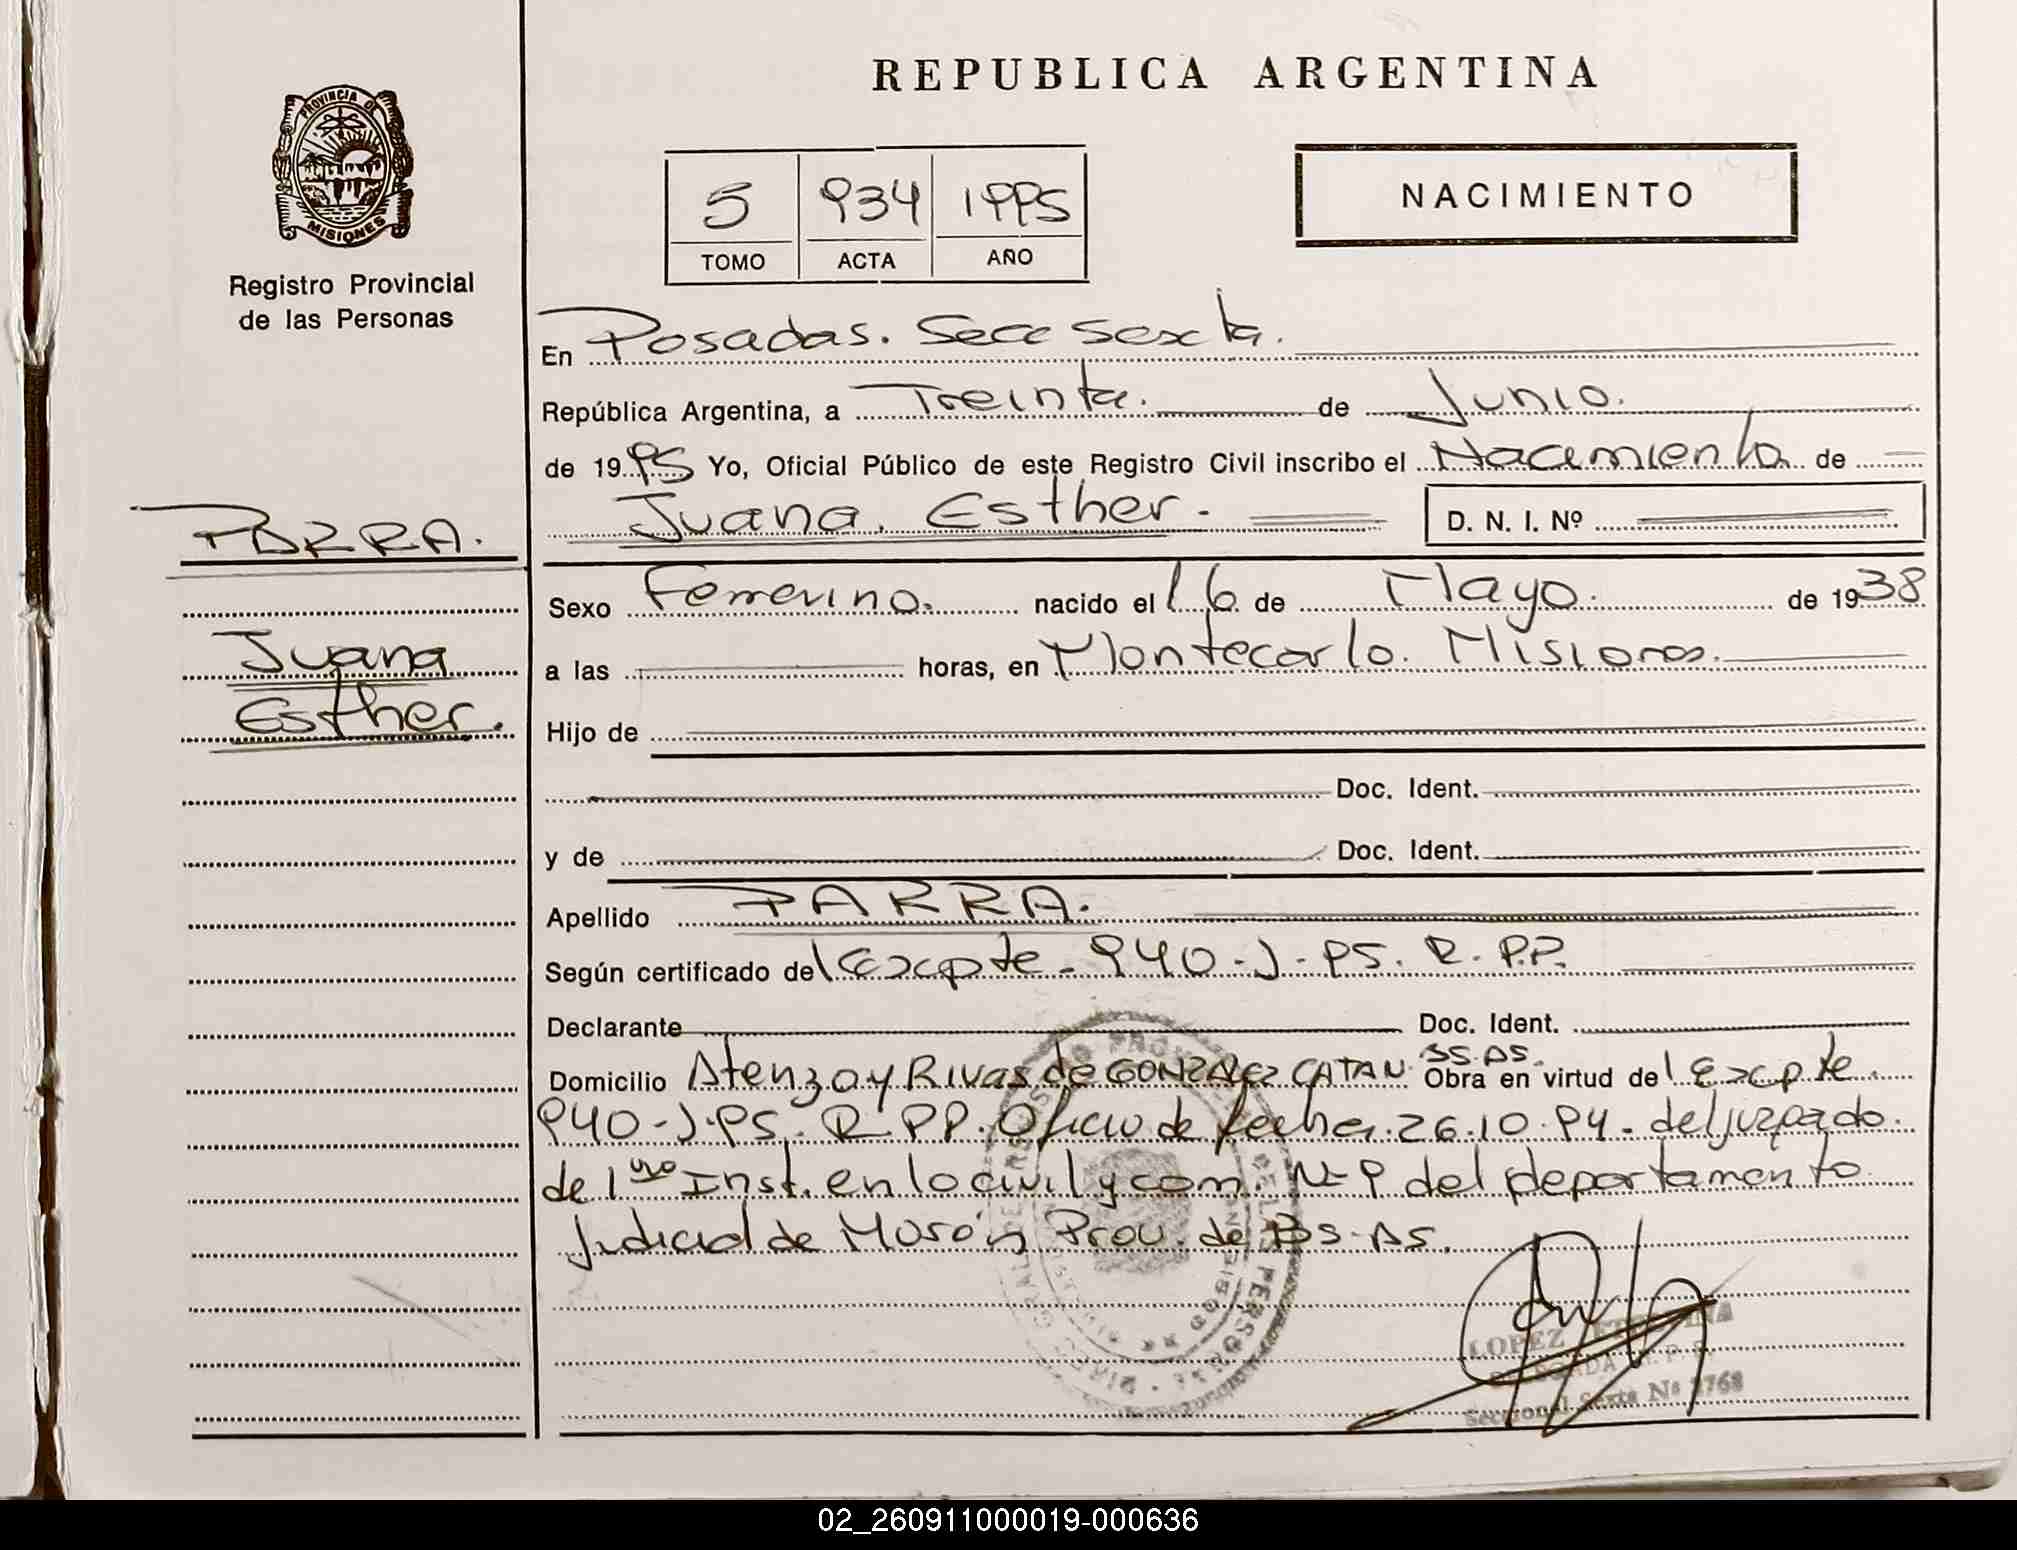 REPUBLICA ARGENTINA
PROVINCIA DE
MISIONES
Registro Provincial
de las Personas
5 934 1995
TOMO ACTA AÑO
NACIMIENTO
En Posadas. Secc Sexta.
República Argentina, a Treinta. de Junio.
de 1995 Yo, Oficial Público de este Registro Civil inscribo el Nacimiento de
Juana Esther. D. N. I. Nº
PARRA.
Juana
Esther.
Sexo Femenino. nacido el 16 de Mayo. de 1938
a las horas, en Montecarlo. Misiones.
Hijo de
Doc. Ident.
y de Doc. Ident.
Apellido PARRA.
Según certificado del Excpte. 940-J-95. R.P.P.
Declarante Doc. Ident.
Domicilio Atenzo y Rivas de GONZALEZ CATAN BS.AS. Obra en virtud del Excpte.
940-J-95. R.PP. Oficio de fecha 26.10.94. del juzgado.
de 1era Inst. en lo civil y com. Nº 9 del departamento
Judicial de Morón Prov. de BS.AS.
LOPEZ
Seccional Sexta Nº 2768
02_260911000019-000636